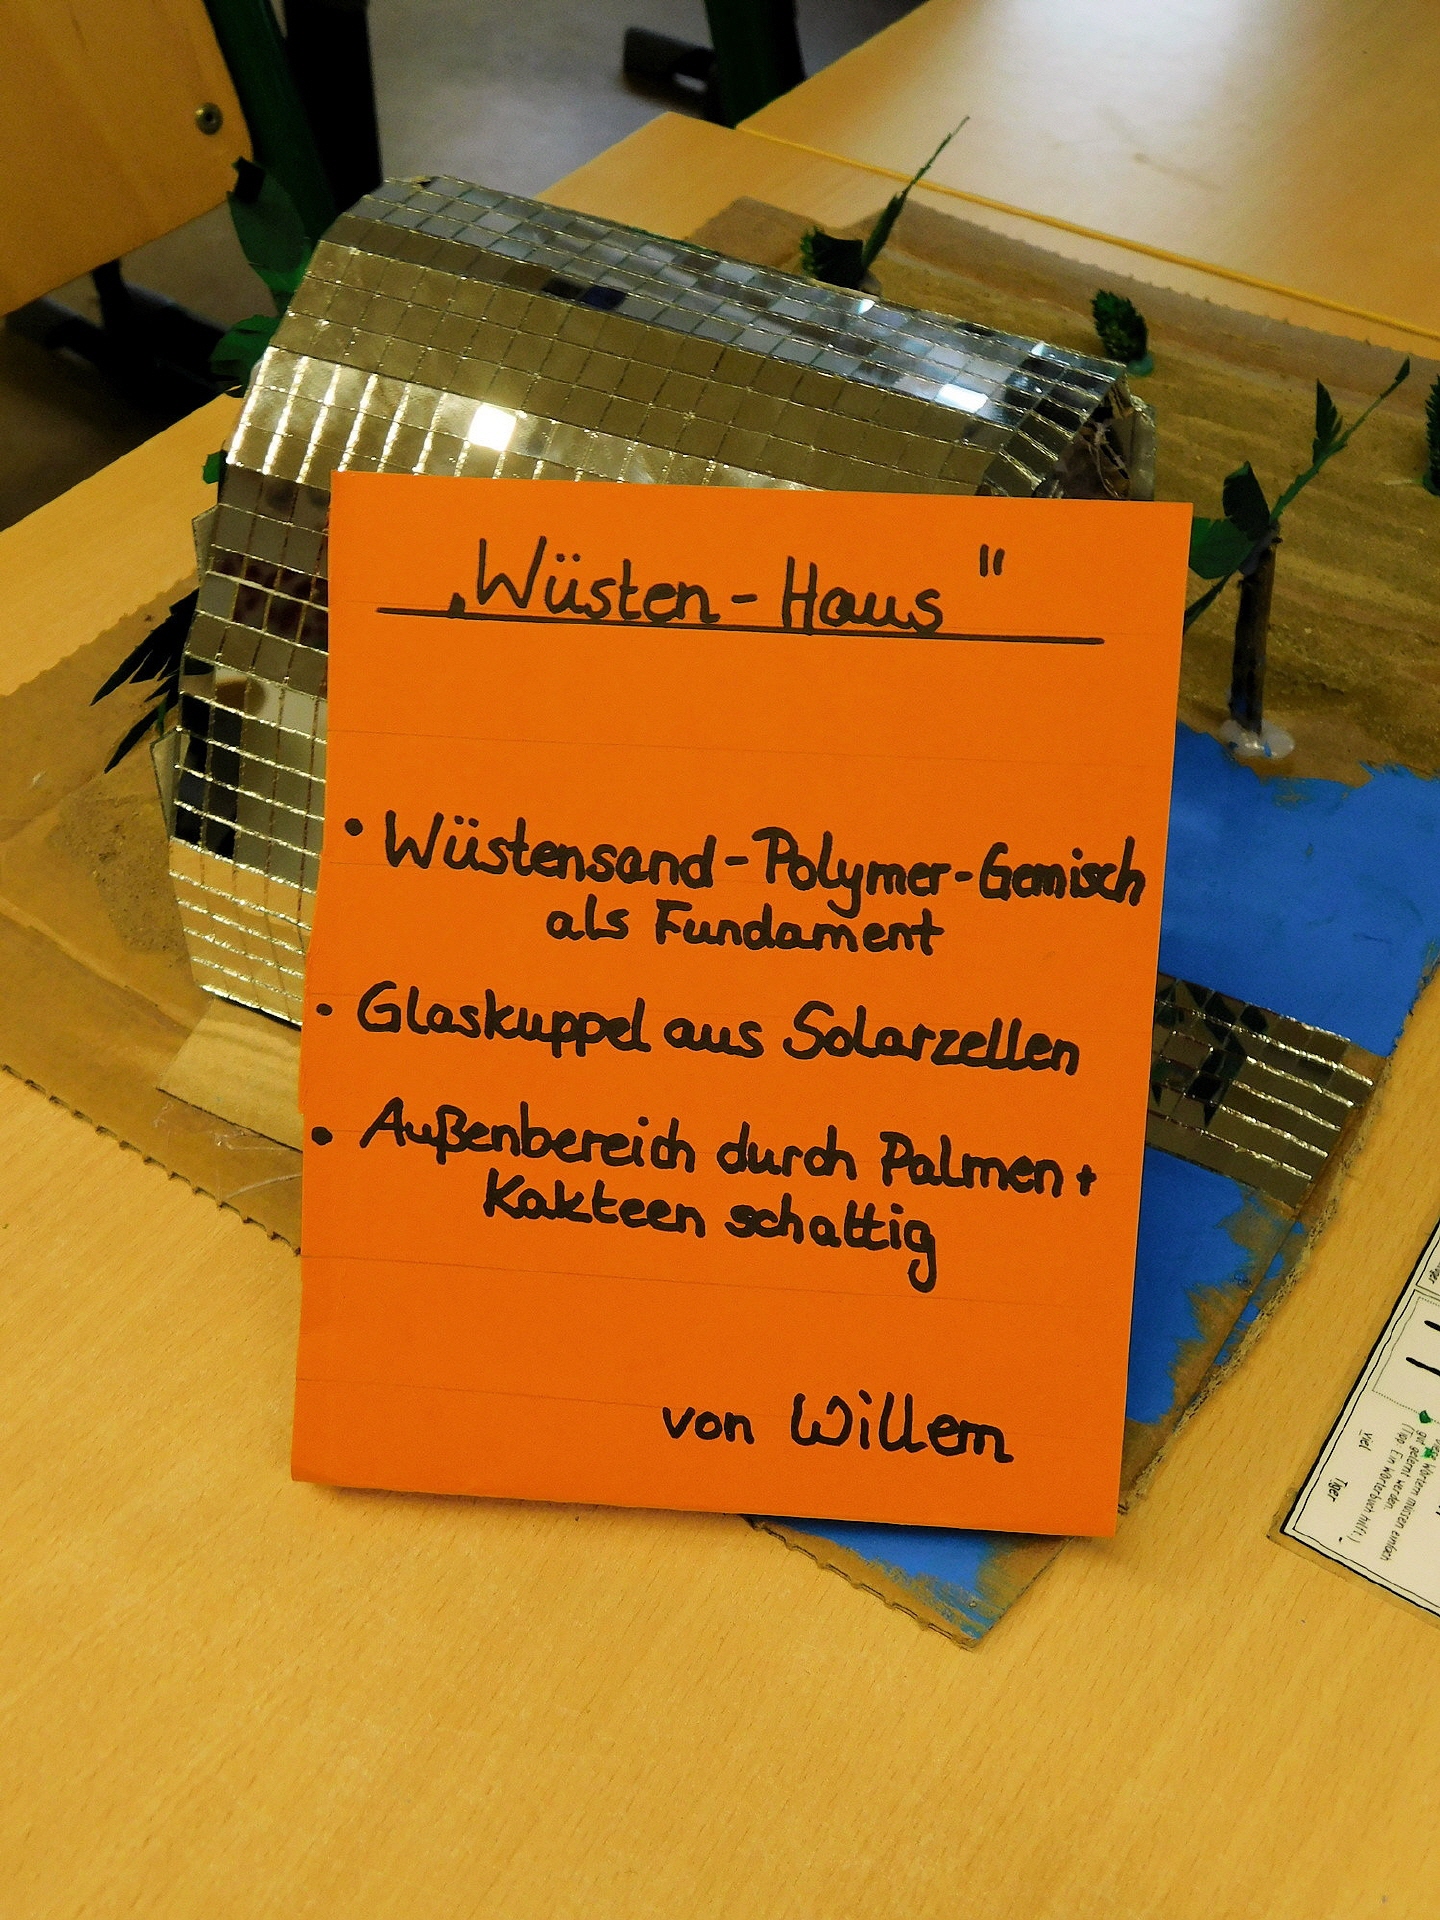 „Wüsten-Haus"
• Wüstensand-Polymer-Gemisch
als Fundament
• Glaskuppel aus Solarzellen
• Außenbereich durch Palmen +
Kakteen schattig
von Willem
viel
Tiger
Wörtern müssen einfach
gut gelernt werden.
(Tipp: Ein Wörterbuch hilft!)